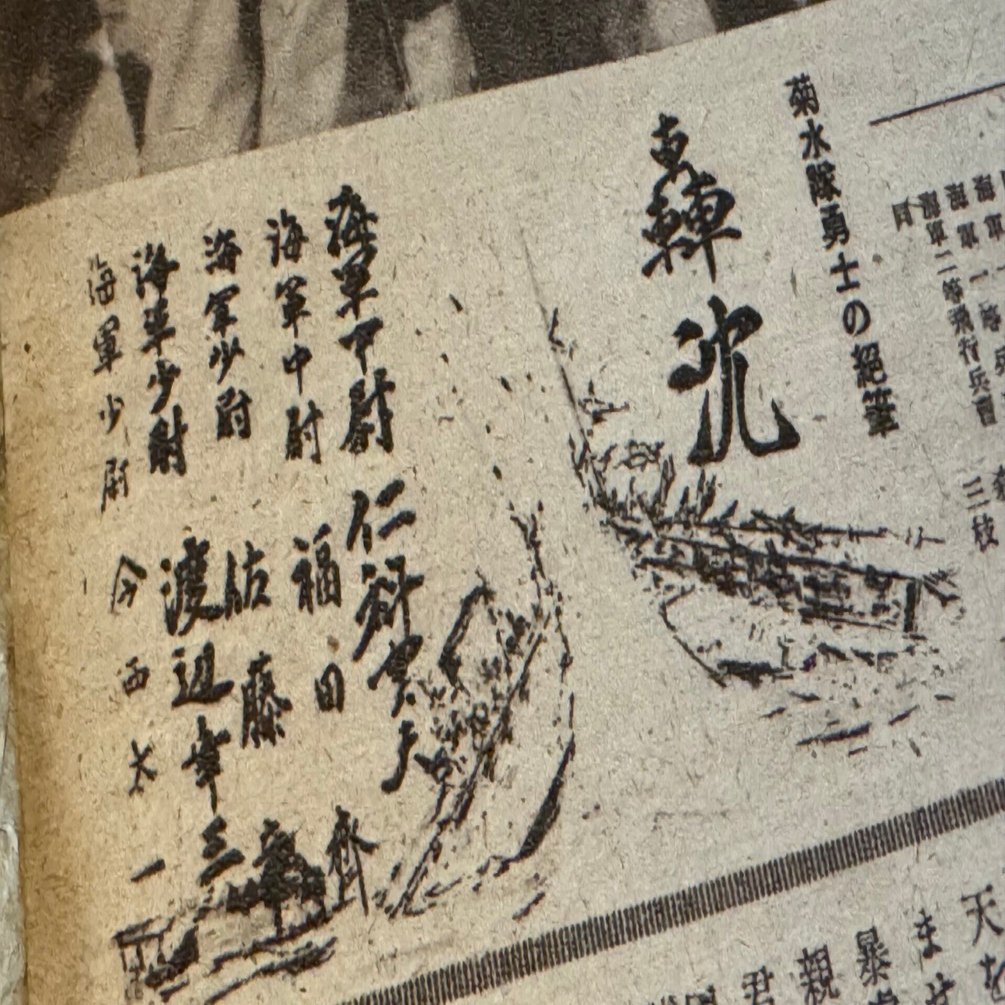 海軍一等兵
海軍二等飛行兵曹 三枝
同
菊水隊勇士の絕筆
轟沈
海軍中尉 仁科関夫
海軍中尉 福田 齊
海軍少尉 佐藤 章
海軍少尉 渡辺幸三
海軍少尉 今西太一
天
ま
暴
親
君